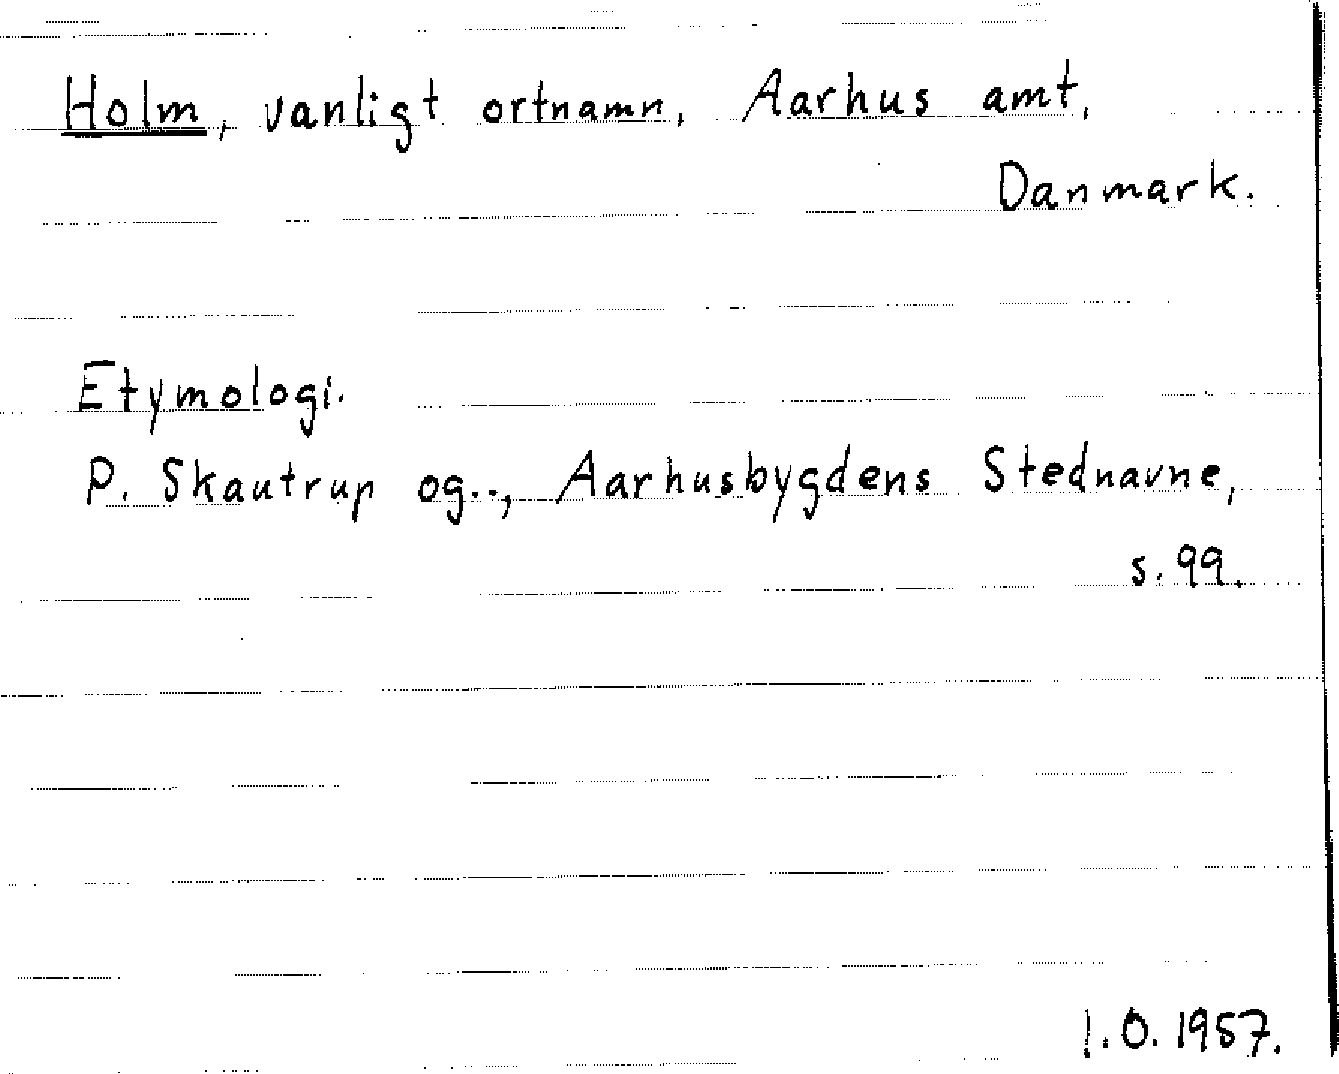 Holm, vanligt ortnamn, Aarhus amt,
Danmark.
Etymologi.
P. Skautrup og.., Aarhusbygdens Stednavne,
s. 99.
I.O. 1957.